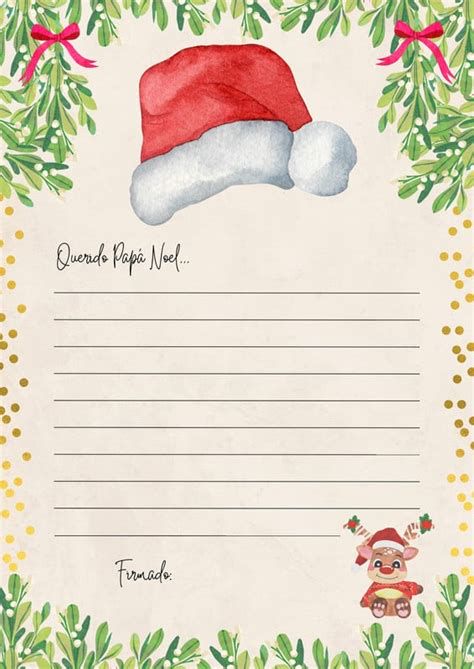 Querido Papá Noel...
Firmado: